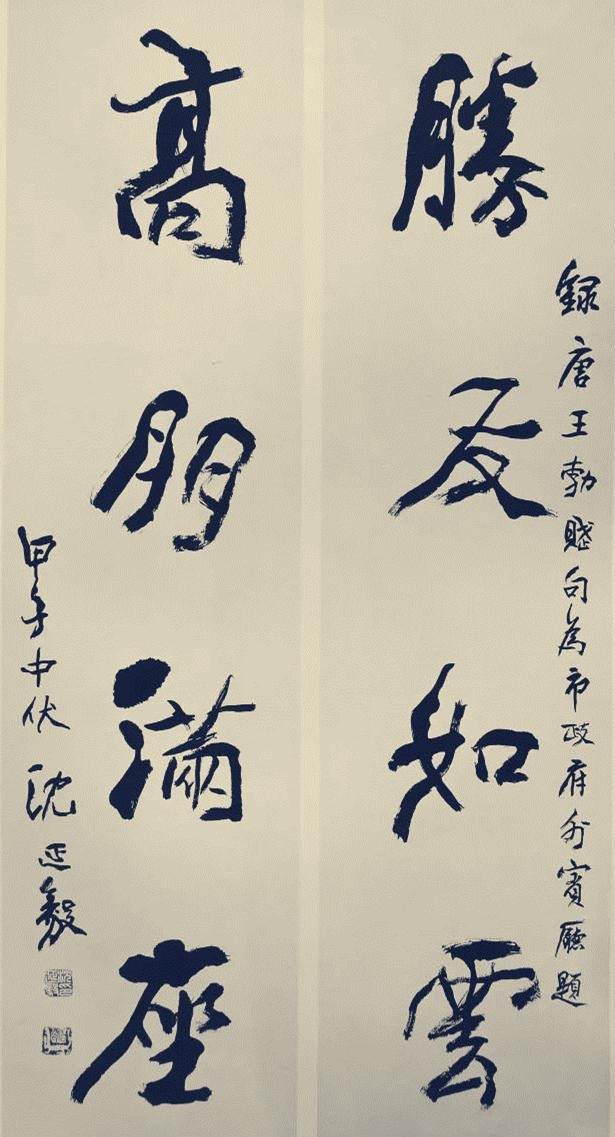 勝友如雲
録唐王勃賦句為市政府外賓廳題
高朋滿座
甲子中伏沈延毅